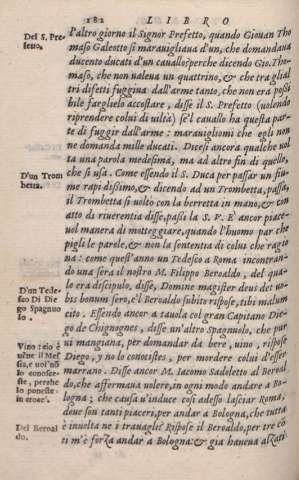 182 LIBRO
Del S. Prefetto.
l'altro giorno il Signor Prefetto, quando Giouan Tho
maso Galeotto si marauigliaua d'un, che domandaua
ducento ducati d'un cauallo: perche dicendo Gio. Tho-
maso, che non ualeua un quattrino, & che tra gli al
tri difetti fuggiua dall'arme tanto, che non era possi
bile farglielo accostare, disse il S. Prefetto (uolendo
riprendere colui di uiltà) s'è'l cauallo ha questa par-
te di fuggir dall'arme: marauigliomi che egli non
ne domanda mille ducati. Dicesi ancora qualche uol
ta una parola medesima, ma ad altro fin di quello,
D'un Trombetta.
che si usa. Come essendo il S. Duca per passar un fiu-
me rapidissimo, & dicendo ad un Trombetta, passa,
il Trombetta si uoltò con la berretta in mano, & con
atto di riuerentia disse, passi la S. V. E' ancor piace-
uol manera di motteggiare, quando l'huomo par che
pigli le parole, & non la sententia di colui che ragio
na: come quest'anno un Tedesco a Roma incontran-
do una sera il nostro M. Filippo Beroaldo, del qua-
D'un Tedesco Di Diego Spagnuolo.
le era discipulo, disse, Domine magister deus det uo-
bis bonum sero, e'l Beroaldo subito rispose, tibi malum
cito. Essendo ancor a tauola col gran Capitano Die-
go de Chignognes, disse un'altro Spagnuolo, che pur
Vino: cio è
ui mangiaua, per domandar da bere, uino, rispose
Diego, y no lo conocistes, per mordere colui d'esser
marrano. Disse ancor M. Iacomo Sadoletto al Beroal
do, che affermaua uolere, in ogni modo andare a Bo-
logna; che causa u'induce cosi adesso lasciar Roma,
doue son tanti piaceri, per andar a Bologna, che tutta
Del Beroaldo.
è inuolta ne i trauagli? Rispose il Beroaldo, per tre cō
ti m'è forza andar a Bologna: & gia haueua alzati